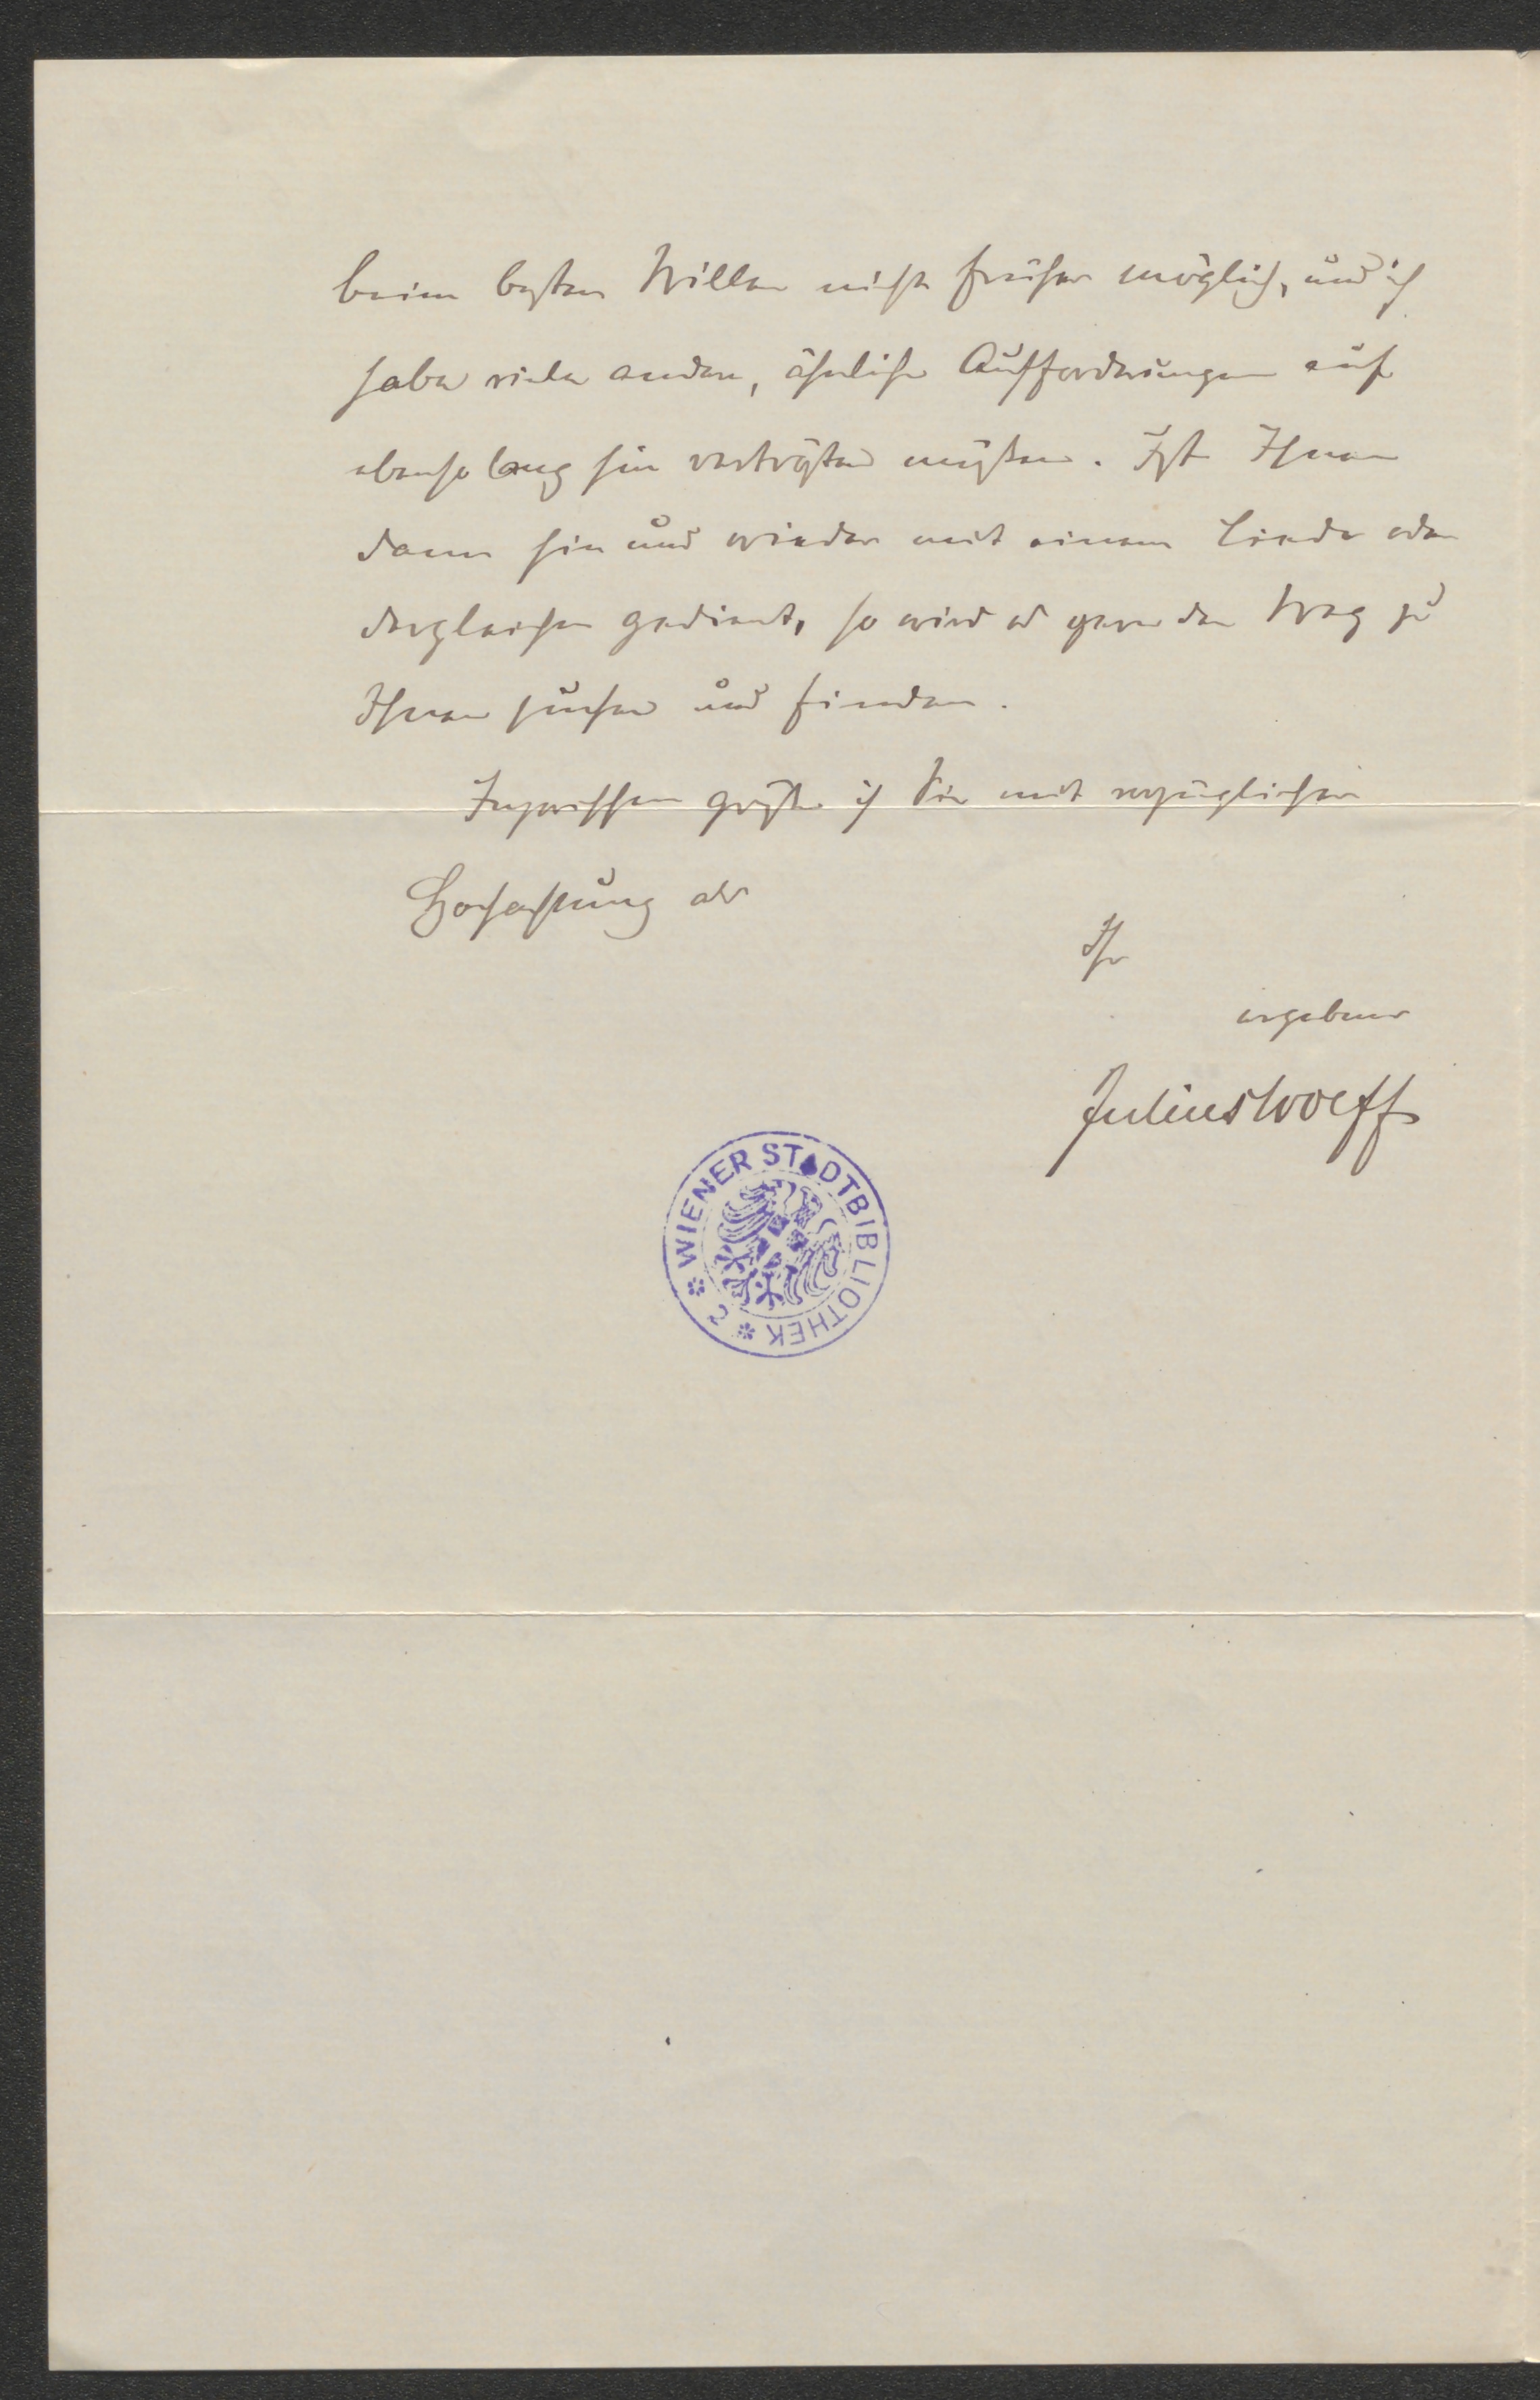 beim besten Willen nicht früher möglich, und ich
habe viele andere, ähnliche Aufforderungen auf
ebenso lang hin vertrösten müssen. Ist Ihnen
dann hin und wieder mit einem Liede oder
dergleichen gedient, so wird es gern den Weg zu
Ihnen suchen und finden.
Inzwischen grüße ich Sie mit vorzüglicher
Hochachtung als
Ihr
ergebener
Julius Wolff
* WIENER STADTBIBLIOTHEK * 2